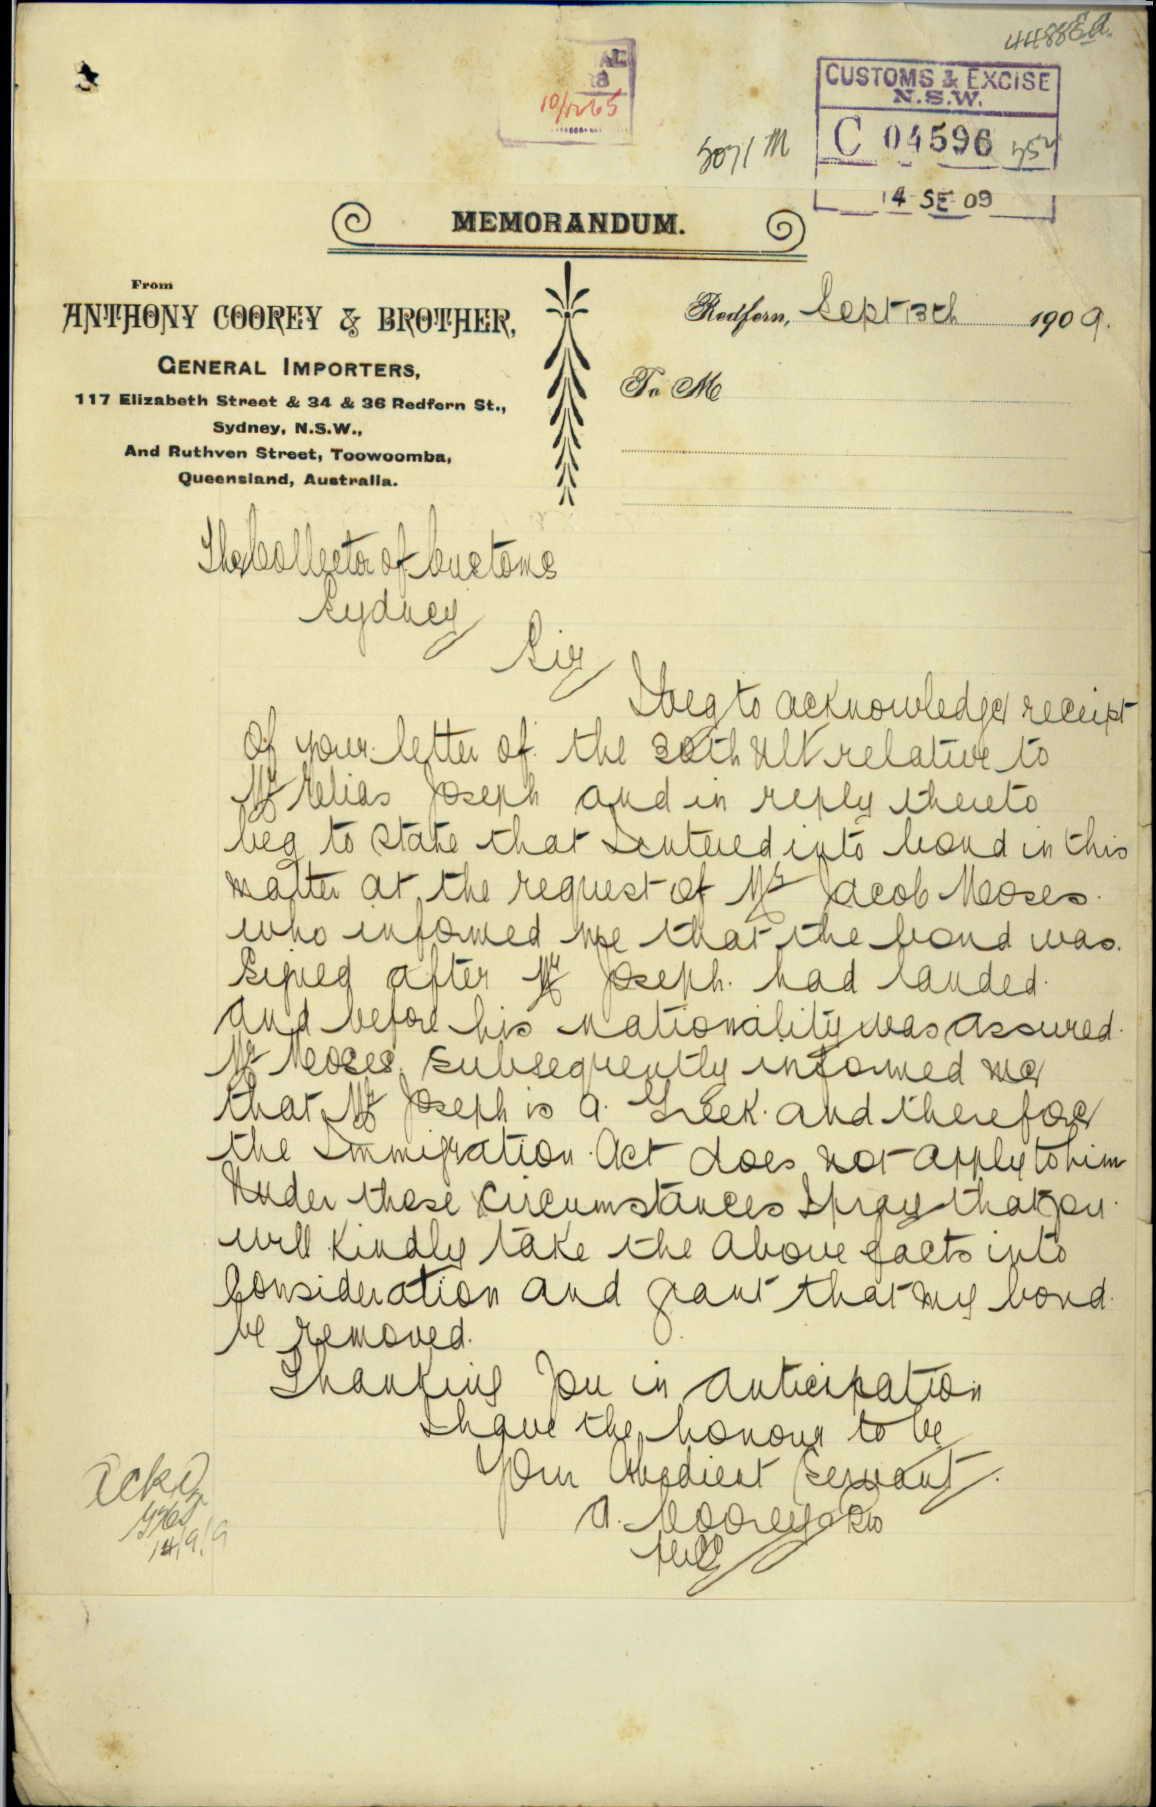 CUSTOMS & EXCISE
N.S.W.
C 04596
14 SE 09
5071 M
MEMORANDUM.
From
ANTHONY COOREY & BROTHER,
GENERAL IMPORTERS,
117 Elizabeth Street & 34 & 36 Redfern St.,
Sydney, N.S.W.,
And Ruthven Street, Toowoomba,
Queensland, Australia.
Redfern, Sept 13th 1909.
To M
The Collector of Customs
Sydney
Sir
I beg to acknowledge receipt
of your letter of the 30th ult relative to
Mr Elias Joseph and in reply thereto
beg to state that I entered into bond in this
matter at the request of Mr Jacob Moses.
who informed me that the bond was.
signed after Mr Joseph. had landed.
and before his nationality was assured.
Mr Moses subsequently informed me
that Mr Joseph is a. Greek. and therefore
the Immigration Act does not apply to him
Under these circumstances I pray that you.
will kindly take the above facts into
consideration and grant that my bond.
be removed.
Thanking You in anticipation
I have the honour to be
Your Obedient Servant.
A. Coorey & Bro
Ackd
14/9/9